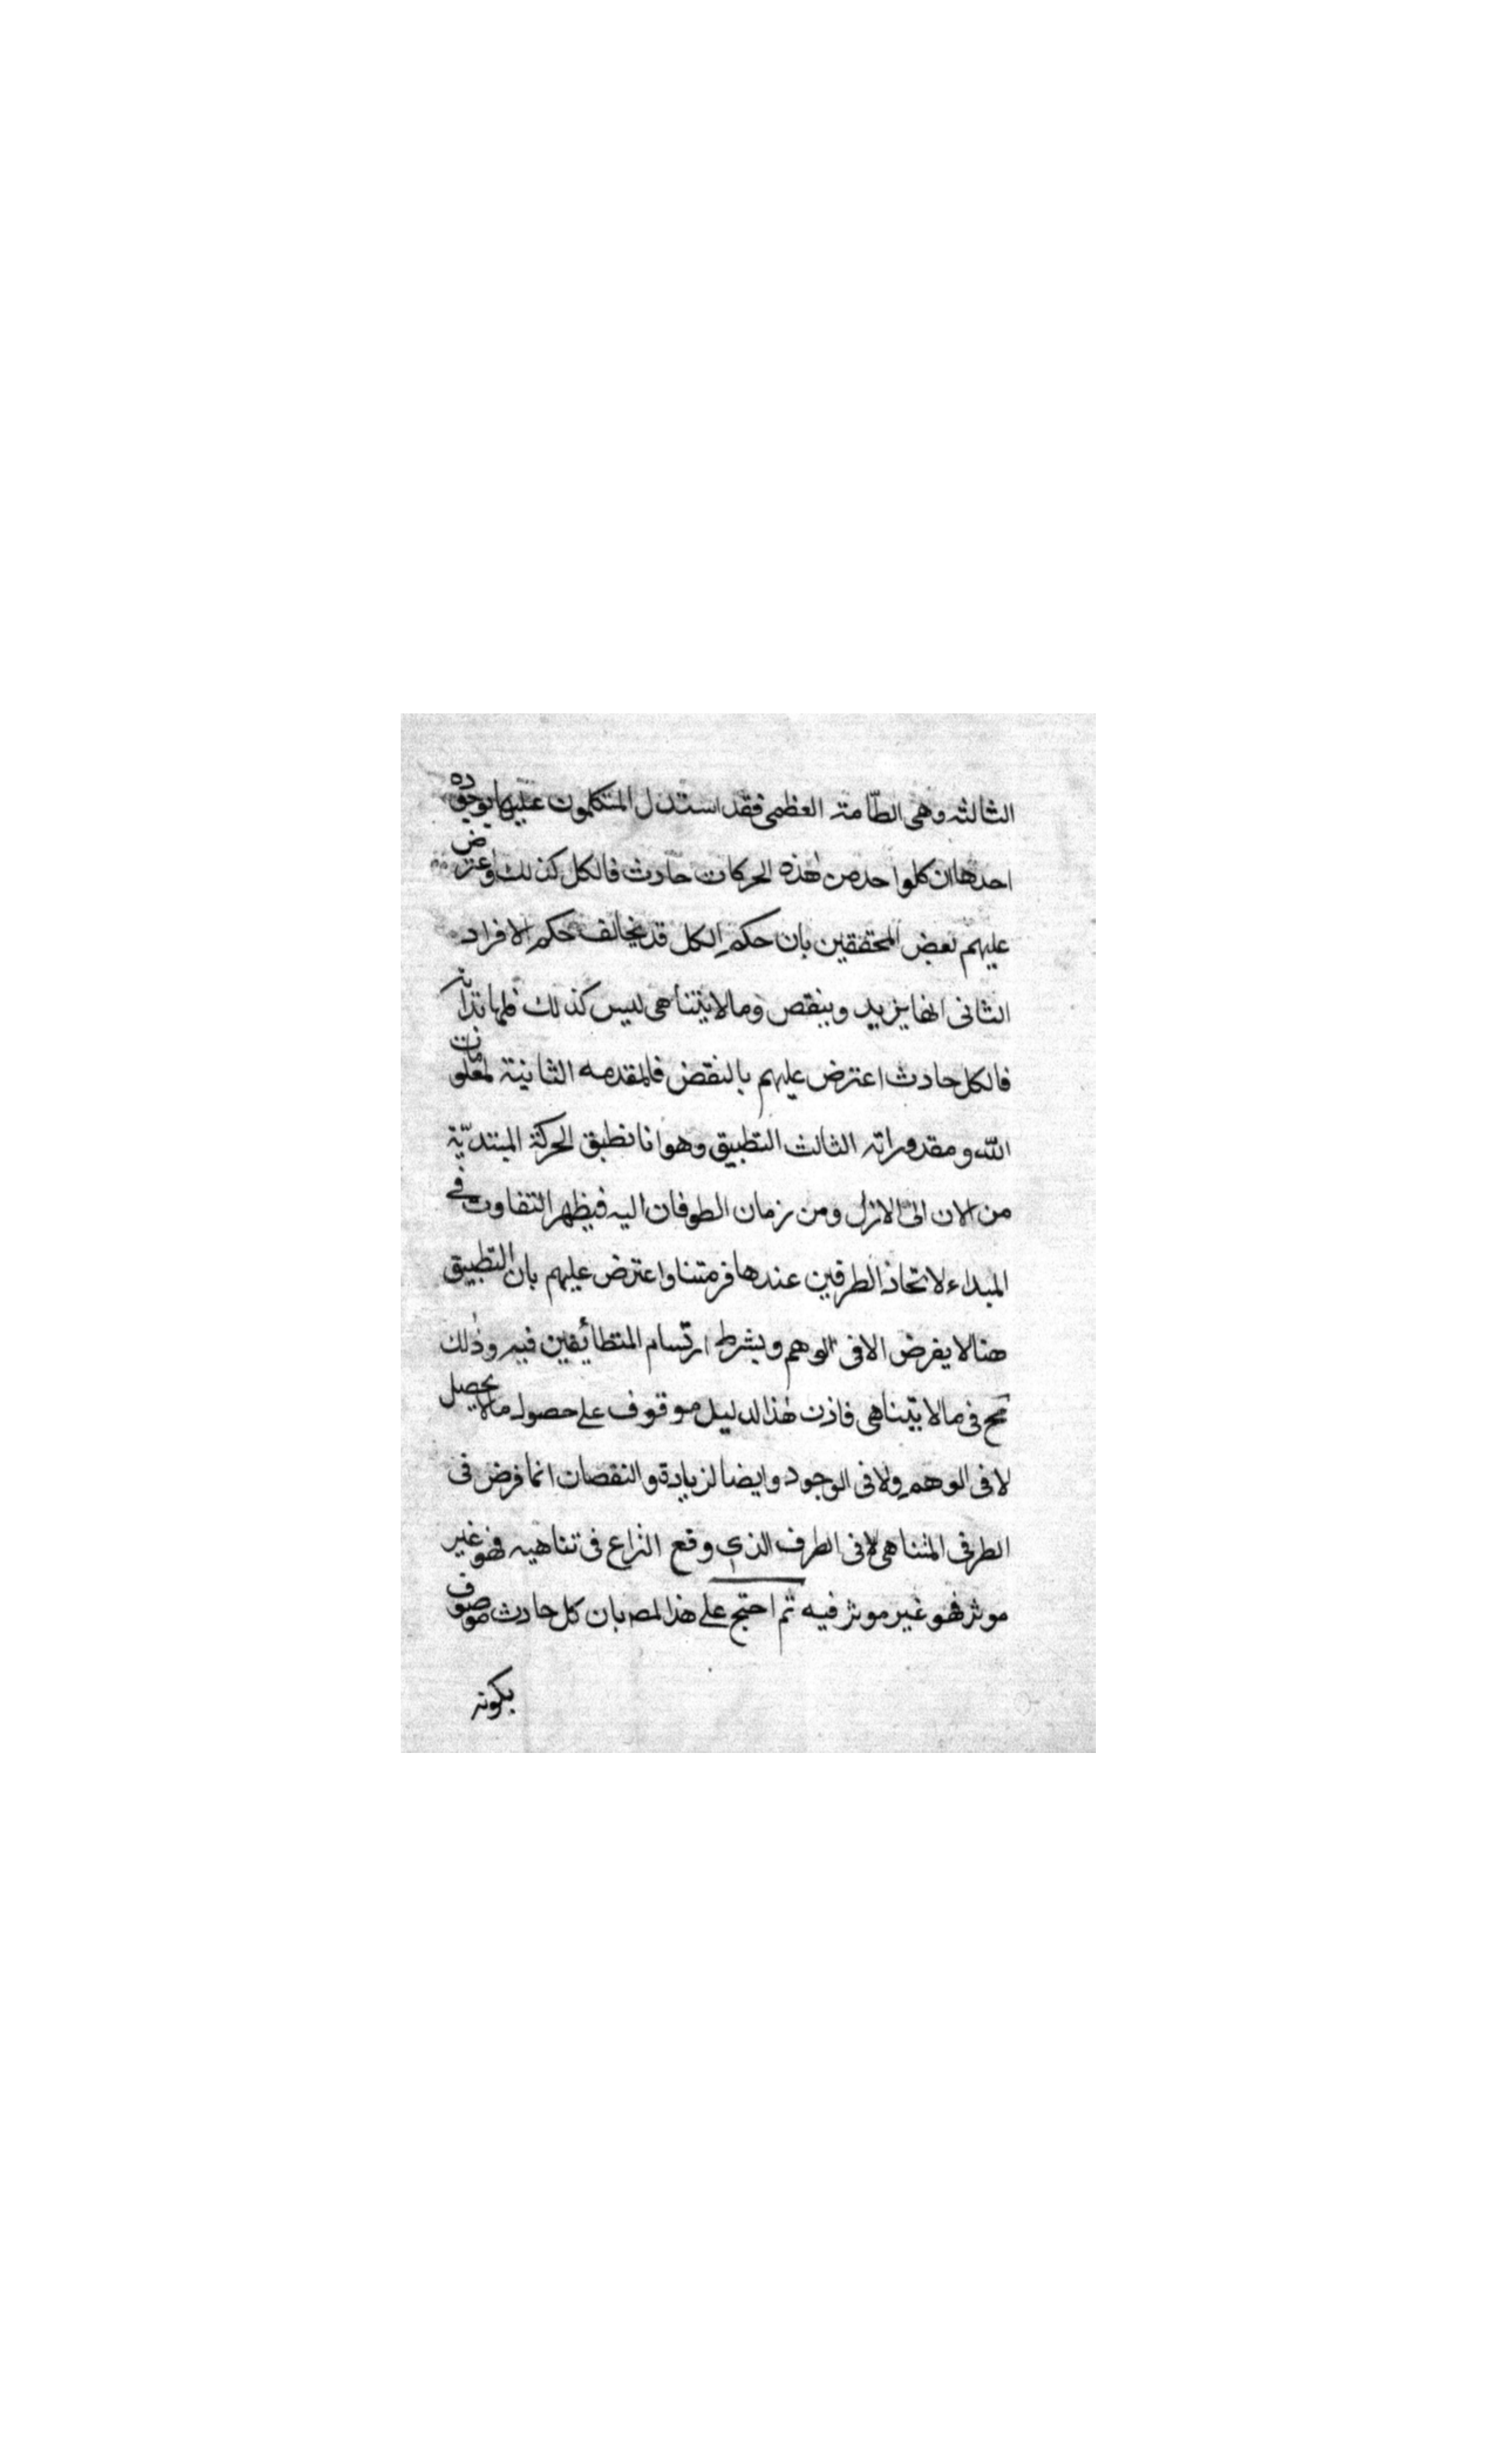 الثالثه وهى الطّامته العظمى فقد استدل المتكلمون عليها بوجوه
احدها ان كلواحد من هٰذه الحركات حادث فالكل كذلك واعترض
عليهم بعض المحققين بان حكم الكل قد يخالف حكم الافراد
الثانى انها يزيد وينقص وما لا يتناهى ليس كذلك فلها بداية
فالكل حادث اعترض عليهم بالنقض فلمقدمه الثانية لمعلومات
اللّه ومقدوراته الثالث التطبيق وهو انا نطبق الحركة المبتديّة
من الان الى الازل ومن زمان الطوفان اليه فيظهر التفاوت فى
المبداء لاتحاد الطرفين عندها فرمتنا واعترض عليهم بان التطبيق
هنا لا يفرض الا فى الوهم وبشرط ارتسام المتطائفين فيه وذٰلك
مح فى ما لا يتناهى فاذن هٰذا لدليل موقوف على حصول ما لا يحصل
لا فى الوهم ولا فى الوجود وايضا لزيادة والنقصان انما فرض فى
الطرفى المتناهى لا فى الطرف الذى وقع النزاع فى تناهيه فهو غير
موثر فهو غير موثر فيه ثم احتج على هذا لمص بان كل حادث موصوف
بكونه